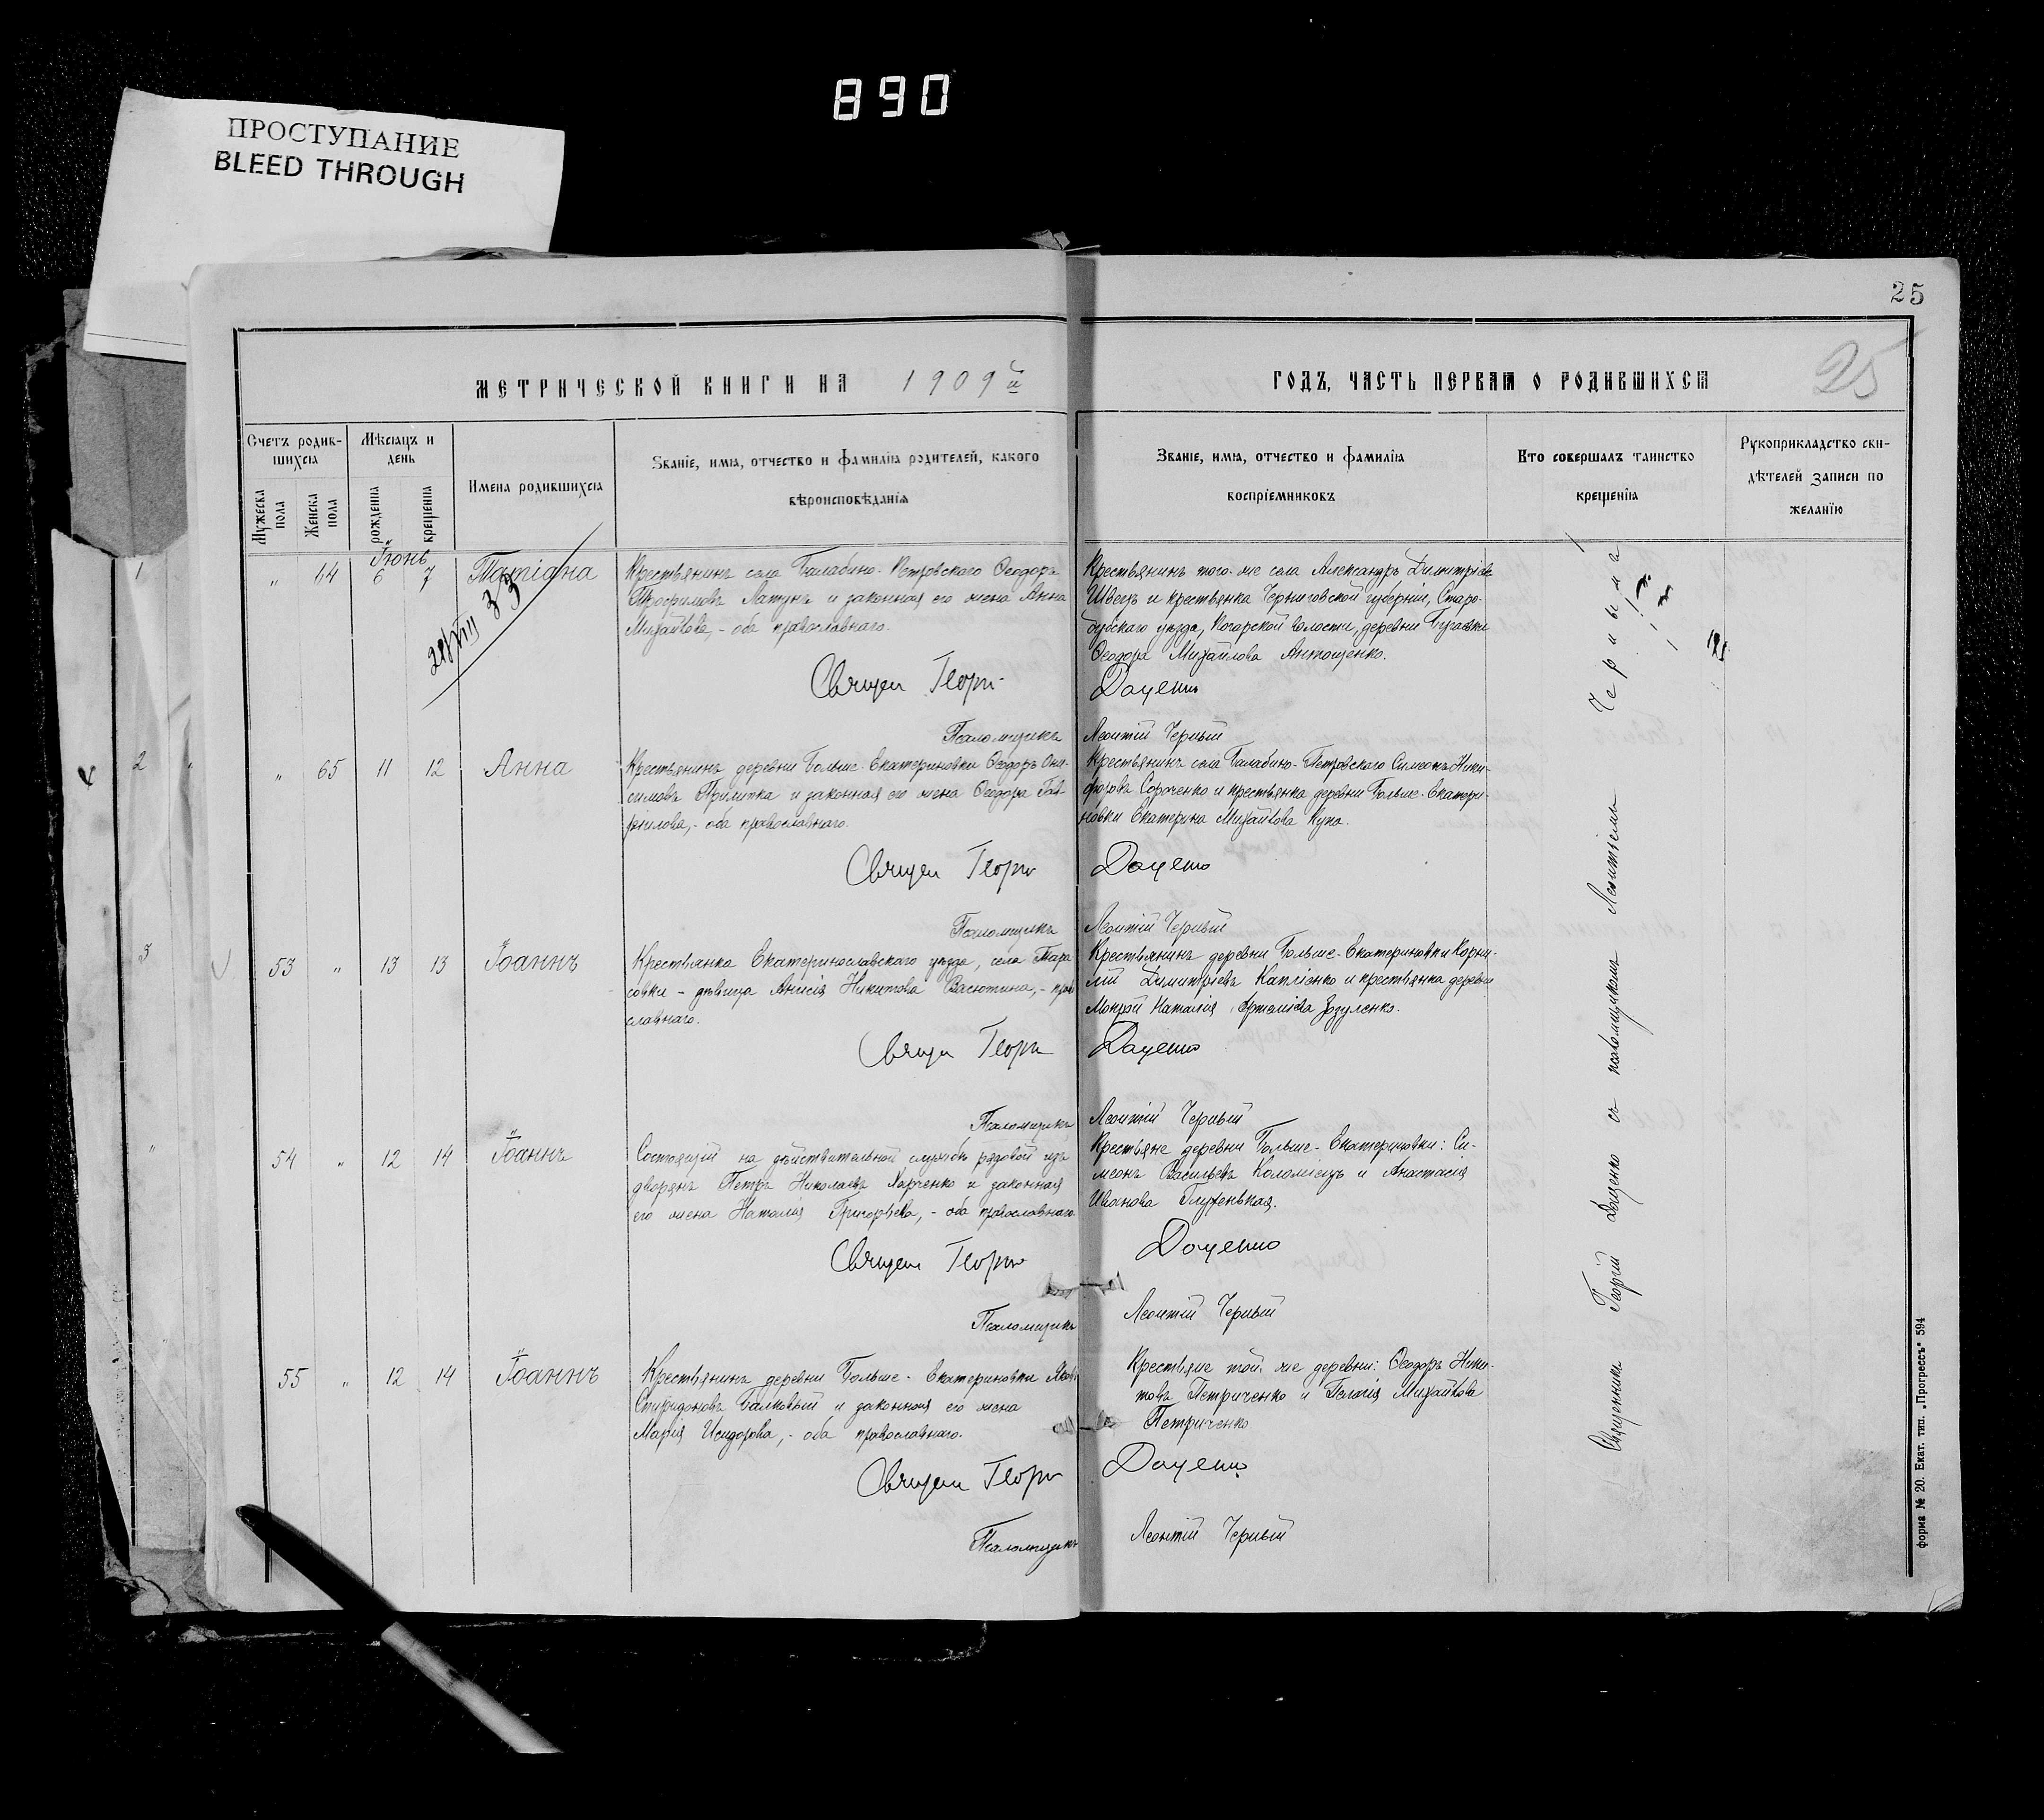 890
ПРОСТУПАНИЕ
BLEED THROUGH
25
25
МЕТРИЧЕСКОЙ КНИГИ НА 1909й
ГОДЪ, ЧАСТЬ ПЕРВАЯ О РОДИВШИХСЯ
Счетъ родив-
шихся
Мѣсяцъ и
день
Имена родившихся
Званіе, имя, отчество и фамилія родителей, какого
вѣроисповѣданія
Мужеска пола
Женска пола
рожденія
крещенія
Званіе, имя, отчество и фамилія
воспріемниковъ
Кто совершалъ таинство
крещенія
Рукоприкладство сви-
дѣтелей записи по
желанію
Іюнь
" 64 6 7 Татіана
Крестьянинъ села Балабино-Петровскаго Ѳеодоръ
Трофимовъ Латунъ и законная его жена Анна
Михайлова, - оба православнаго.
Крестьянинъ того-же села Александръ Димитріевъ
Швецъ и крестьянка Черниговской губерніи, Старо-
дубскаго уѣзда, Погарской волости, деревни
Ѳеодора Михайлова Антощенко.
33
Священ Георгі Даценко
Псаломщикъ Леонтій Черный
2 " 65 11 12 Анна
Крестьянинъ деревни Больше-Екатериновки Ѳеодоръ Они-
симовъ Прилипка и законная его жена Ѳеодора Гав-
риилова, - оба православнаго.
Крестьянинъ села Балабино-Петровскаго Симеонъ Ники-
форовъ Сороченко и крестьянка деревни Больше-Екатери-
новки Екатерина Михайлова Купа.
Священ Георгі Даценко
Псаломщикъ Леонтій Черный
3 53 " 13 13 Іоаннъ
Крестьянка Екатеринославскаго уѣзда, села Тара
совки - дѣвица Анисія Никитова Васютина, - право
славнаго.
Крестьянинъ деревни Больше-Екатериновки Корни-
лій Димитріевъ Капліенко и крестьянка деревни
Мокрой Наталія Артеміева Зозуленко.
Священ Георгі Даценко
Псаломщикъ Леонтій Черный
54 " 12 14 Іоаннъ
Состоящій на дѣйствительной службѣ рядовой изъ
дворянъ Петръ Николаевъ Харченко и законная
его жена Наталія Григорьева, - оба православнаго.
Крестьяне деревни Больше-Екатериновки: Си-
меонъ Васильевъ Коломіецъ и Анастасія
Иванова Глухенькая.
Священ Георгі Даценко
Псаломщикъ Леонтій Черный
55 " 12 14 Іоаннъ
Крестьянинъ деревни Больше-Екатериновки Яковъ
Спиридоновъ Балковый и законная его жена
Марія Исидорова, - оба православнаго.
Крестьяне той-же деревни: Ѳеодоръ Ники-
товъ Петриченко и Пелагія Михайлова
Петриченко
Священ Георгі Даценко
Псаломщикъ Леонтій Черный
Священникъ Георгій Даценко съ псаломщикомъ Леонтіемъ Чернымъ
форма № 20. Екат. тип. „Прогрессъ" 594